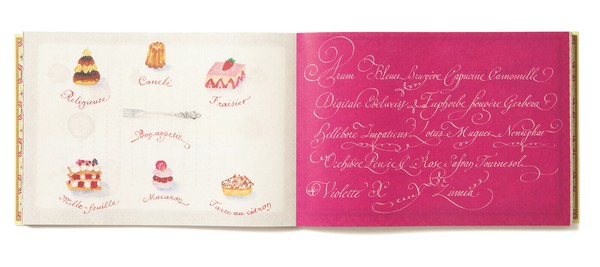 Religieuse
Canelé
Fraisier
Bon appétit
Mille-feuille
Macaron
Tarte au citron
Arum Bleuet bruyère Capucine Camomille
Digitale Edelweiss Euphorbe fougère Gerbera
Hellébore Impatiens Lotus Muguet Nénuphar
Orchidée Pensée Rose Safran Tournesol
Violette X Zinnia